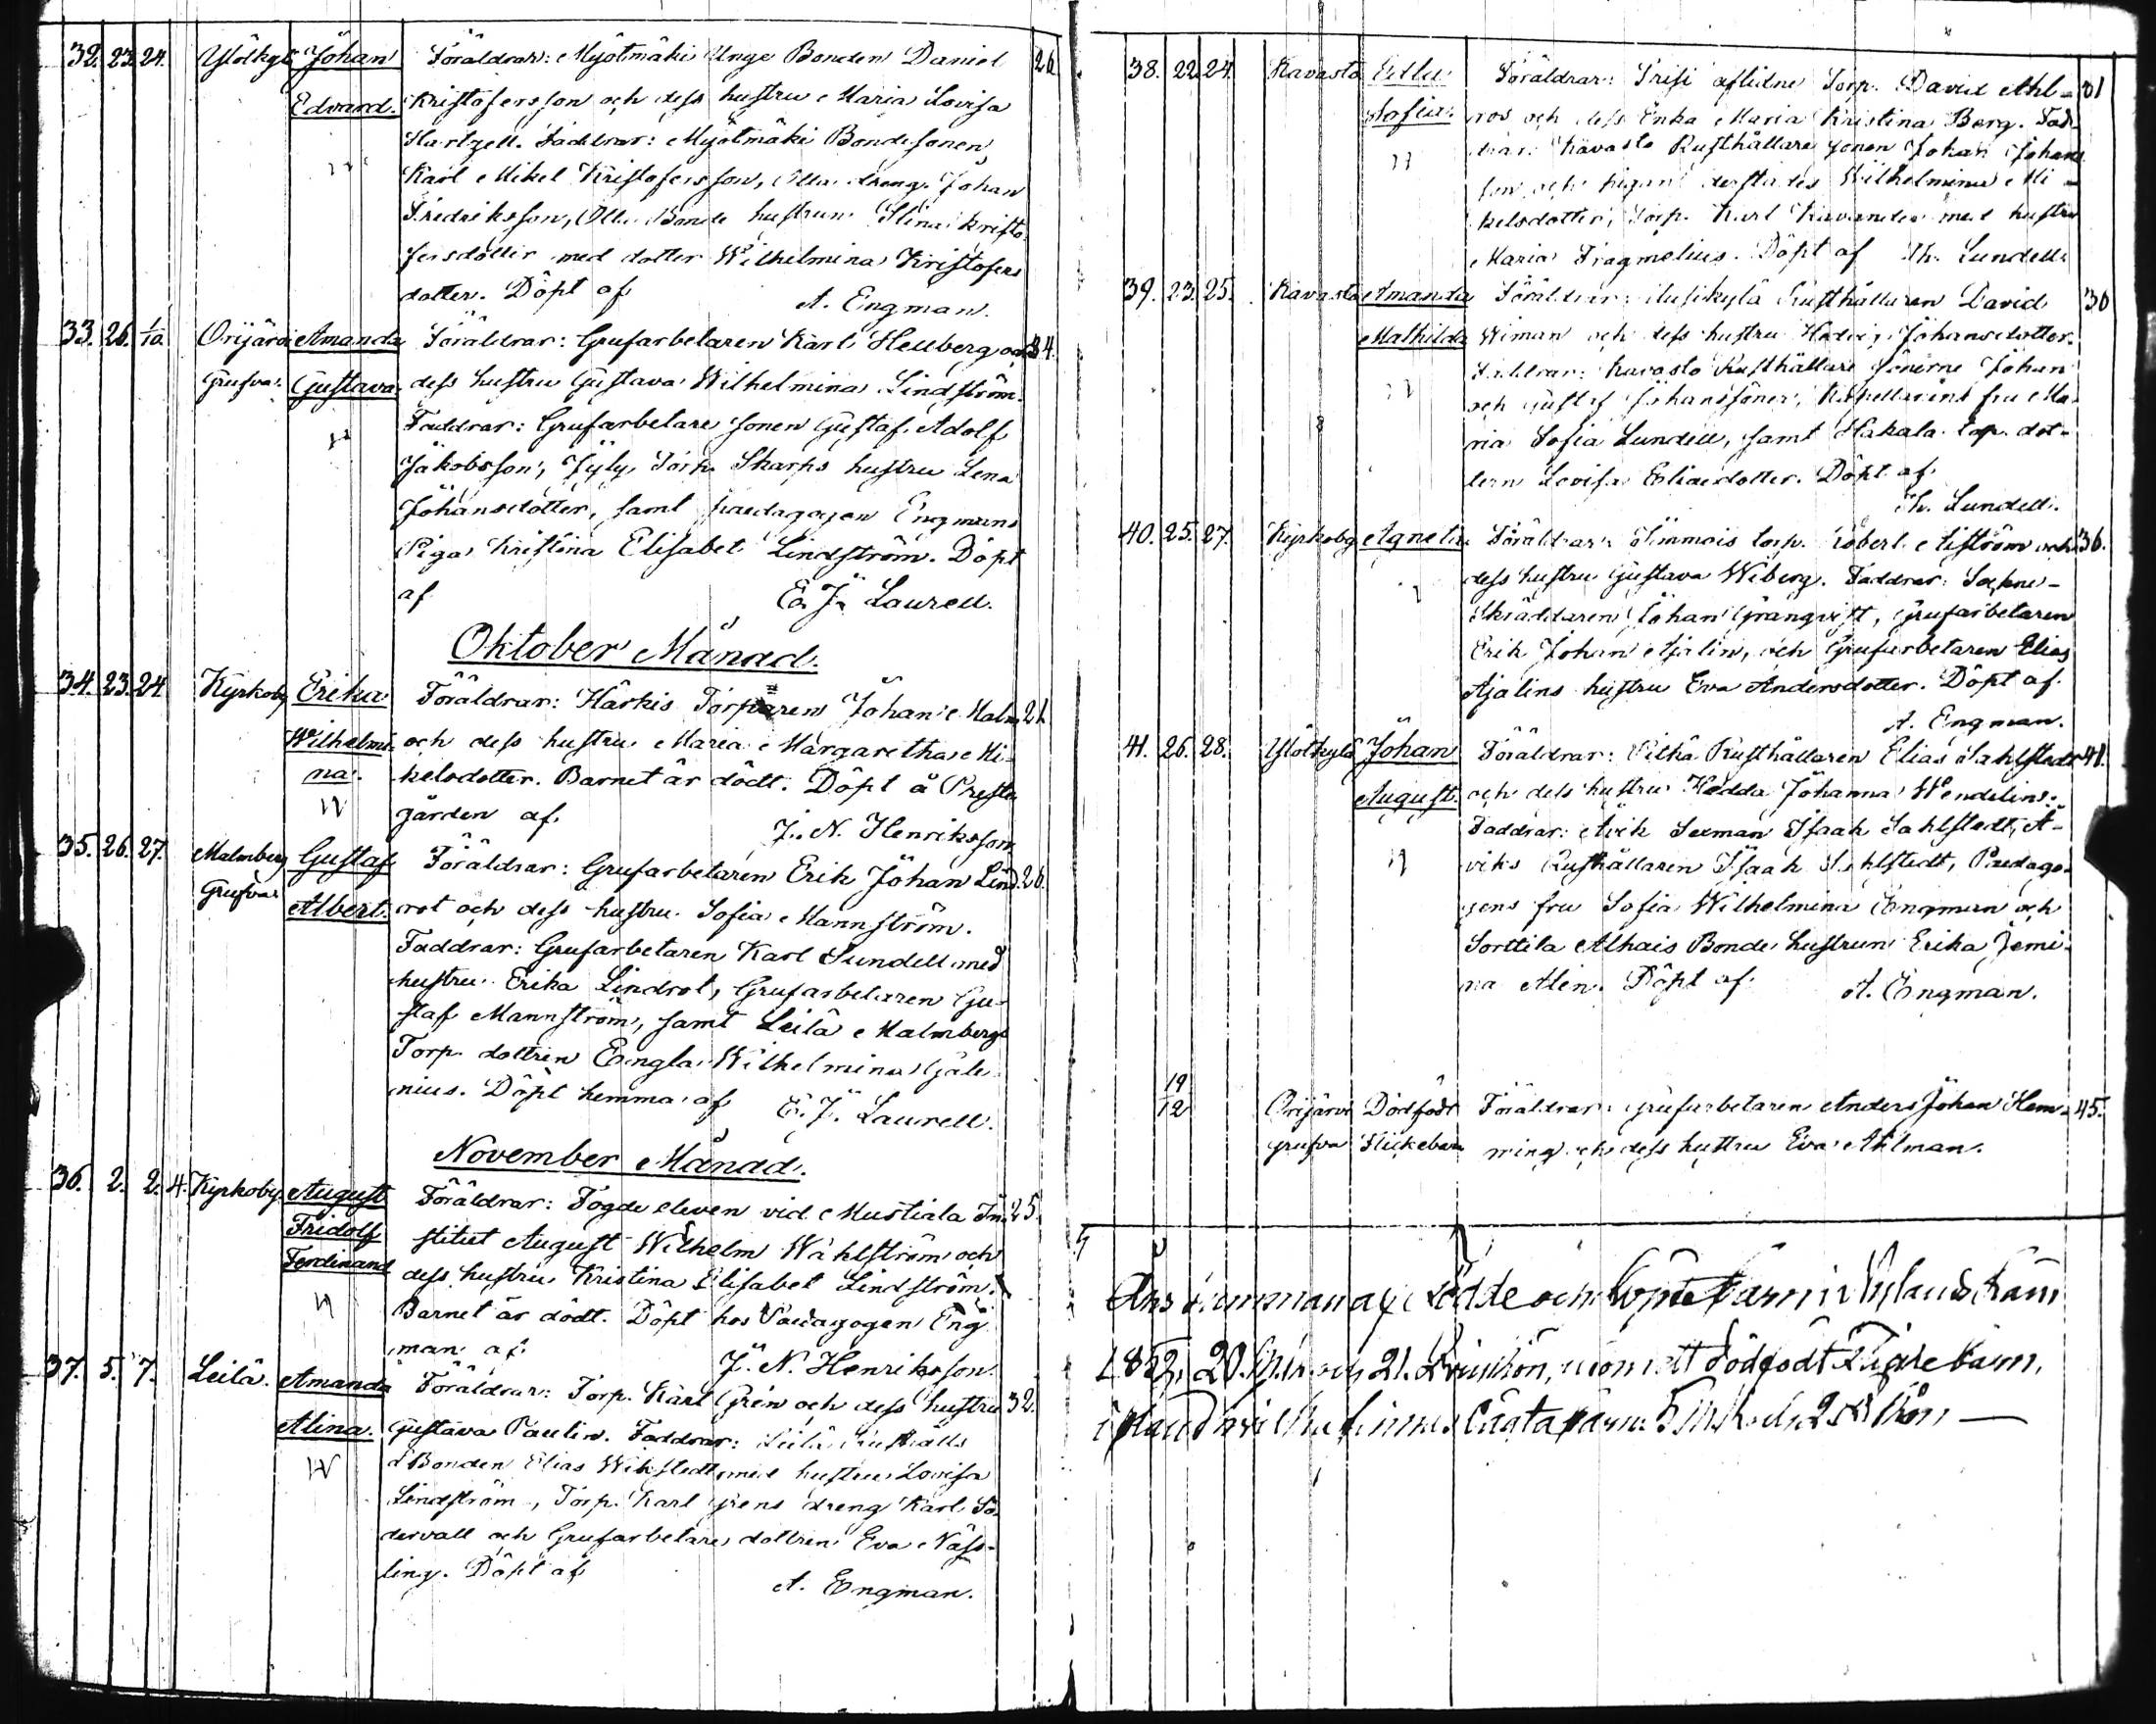 32. 23. 24. Ylökylä Johan Föräldrar: Myötmäki Unge Bonden Daniel 26
Edvard. Kristofersson och dess hustru Maria Lovisa
Hartzell. Faddrar: Myötmäki Bondesonen
Karl Mikel Kristofersson, dräng Johan
Fredriksson, Bonde hustrun Stina Kristo
fersdotter med dotter Wilhelmina Kristofers
dotter. Döpt af A. Engman.
33. 26. 1/10. Orijärvi Amanda Föräldrar: Grufarbetaren Karl Hellberg och 34.
Grufva. Gustava. dess hustru Gustava Wilhelmina Lindström.
Faddrar: Grufarbetare sonen Gustaf Adolf
Jakobsson, Jyly Torp. Skarps hustru Lena
Johansdotter, samt paedagogen Engmans
Piga Kristina Elisabet Lindström. Döpt
af E. J. Laurell.
Oktober Månad.
34. 23. 24. Kyrkoby Erika Föräldrar: Härkis Torparen Johan Malm 21.
Wilhelmi- och dess hustru Maria Margaretha Mi-
na. kelsdotter. Barnet är dödt. Döpt å Prest
gården af J. N. Henriksson
35. 26. 27. Malmberg Gustaf Föräldrar: Grufarbetaren Erik Johan Lind 26.
Grufva Albert. rot och dess hustru Sofia Mannström.
Faddrar: Grufarbetaren Karl Sundell med
hustru Erika Lindrot, Grufarbetaren Gu-
staf Mannström, samt Leilä Malmbergs
Torp. dottren Engla Wilhelmina Gäle-
nius. Döpt hemma af E. J. Laurell.
November Månad.
36. 2. 2. 4. Kyrkoby August Föräldrar: Fogde eleven vid Mustiala In- 25.
Fridolf stitut August Wilhelm Wahlström och
Ferdinand dess hustru Kristina Elisabet Lindström.
Barnet är dödt. Döpt hos Paedagogen Eng
man af J. N. Henriksson.
37. 5. 7. Leilä. Amanda Föräldrar: Torp. Karl Gren och dess hustru 32.
Alina. Gustava Paulin. Faddrar: Leilä
Bonden Elias Wikstedt med hustru Lovisa
Lindström, Torp. Karl Grens dreng Karl Sö-
dervall och Grufarbetare dottren Eva Näss-
ling. Döpt af A. Engman.
38. 22. 24. Kavasto Edla Föräldrar: Prisi aflidne Torp. David Ahl- 31
Sofia. ros och dess Enka Maria Kristina Berg. Fad-
drar: Kavasto Rusthållare sonen Johan Johans
son och pigan derstädes Wilhelmina Mi-
kelsdotter, Torp. Karl Kavander med hustru
Maria Fragmelius. Döpt af Th. Lundell.
39. 23. 25. Kavasto Amanda Föräldrar: Uusikylä Rusthållaren David 30
Mathilda Wiman och dess hustru Hedvig Johansdotter.
Faddrar: Kavasto Rusthållare sönerne Johan
och Gustaf Johanssöner, Kapellarens fru Ma-
ria Sofia Lundell, samt Hakala Torp. dot-
tern Lovisa Eliaedotter. Döpt af
Th. Lundell.
40. 25. 27. Kyrkoby Agneta Föräldrar: Simmois torp. Robert Aiström och 36.
dess hustru Gustava Wiberg. Faddrar: Sockne-
Skräddaren Johan Granqvist, Grufarbetaren
Erik Johan Ajalin, och Grufarbetaren Elias
Ajalins hustru Eva Andersdotter. Döpt af
A. Engman.
41. 26. 28. Ylökylä Johan Föräldrar: Pilkä Rusthållaren Elias Sahlstedt 41.
August. och dess hustru Hedda Johanna Wendelin.
Faddrar: Avik Sexman Isaak Sahlstedt, A-
viks Rusthållaren Isaak Sahlstedt, Paedago-
gens fru Sofia Wilhelmina Engman och
Sorttila Alhais Bonde hustrun Erika Jemi-
na Alen. Döpt af A. Engman.
19/12 Orijärvi Dödfödt Föräldrar: Grufarbetaren Anders Johan Hem- 45.
grufva Flickebarn ming och dess hustru Eva Ahlman.
födde och döpte barn i Nylands Län
1852, 20. och 21. qvinkön, utom ett dödfödt barn,
ibland hvilka finnes oägta barn: 5 och 2